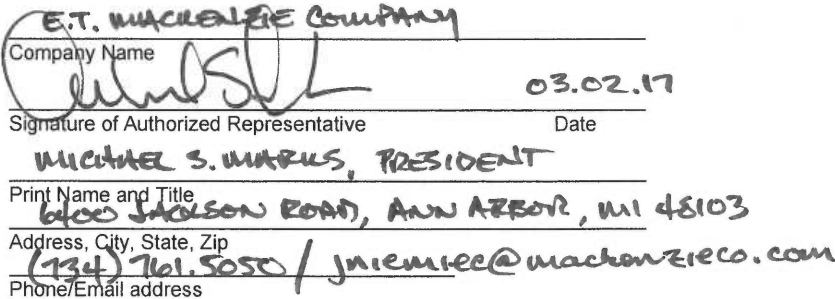 E.T. MACKENZIE COMPANY
Company Name
03.02.17
Signature of Authorized Representative Date
MICHAEL S. MARKS, PRESIDENT
Print Name and Title
6400 JACKSON ROAD, ANN ARBOR, MI 48103
Address, City, State, Zip
(734) 761.5050 / jniemiec@mackenzieco.com
Phone/Email address